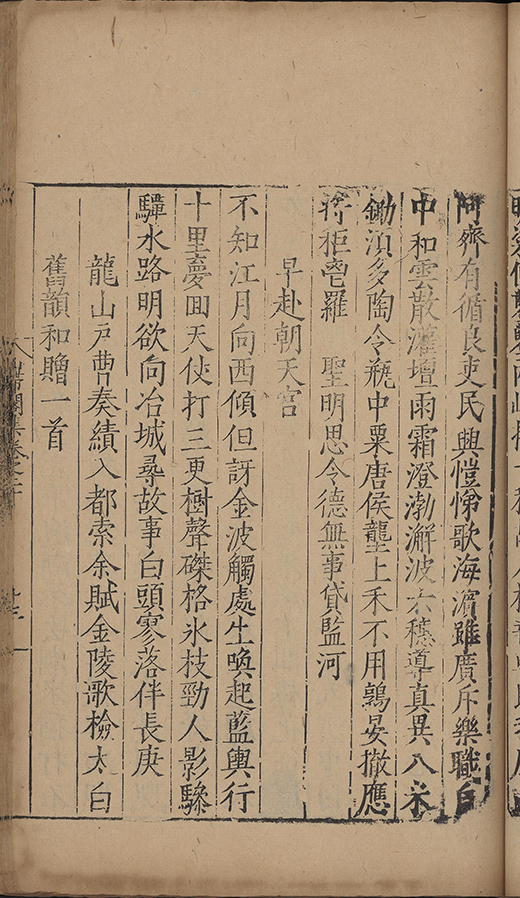 齊有循良吏民興愷悌歌海濱雖廣斥樂職自
中和雲散灌壇雨霜澄渤澥波六穗導真異八米
鋤湏多陶令瓶中粟唐侯壟上禾不用鶉晏撤應
將秬鬯羅　聖明思令德無事貸監河
早赴朝天宮
不知江月向西傾但訝金波觸處生喚起藍輿行
十里夢囬天伎打三更樹聲磔格氷枝勁人影驂
驔水路明欲向冶城尋故事白頭寥落伴長庚
龍山戶曹奏績入都索余賦金陵歌檢太白
舊韻和贈一首